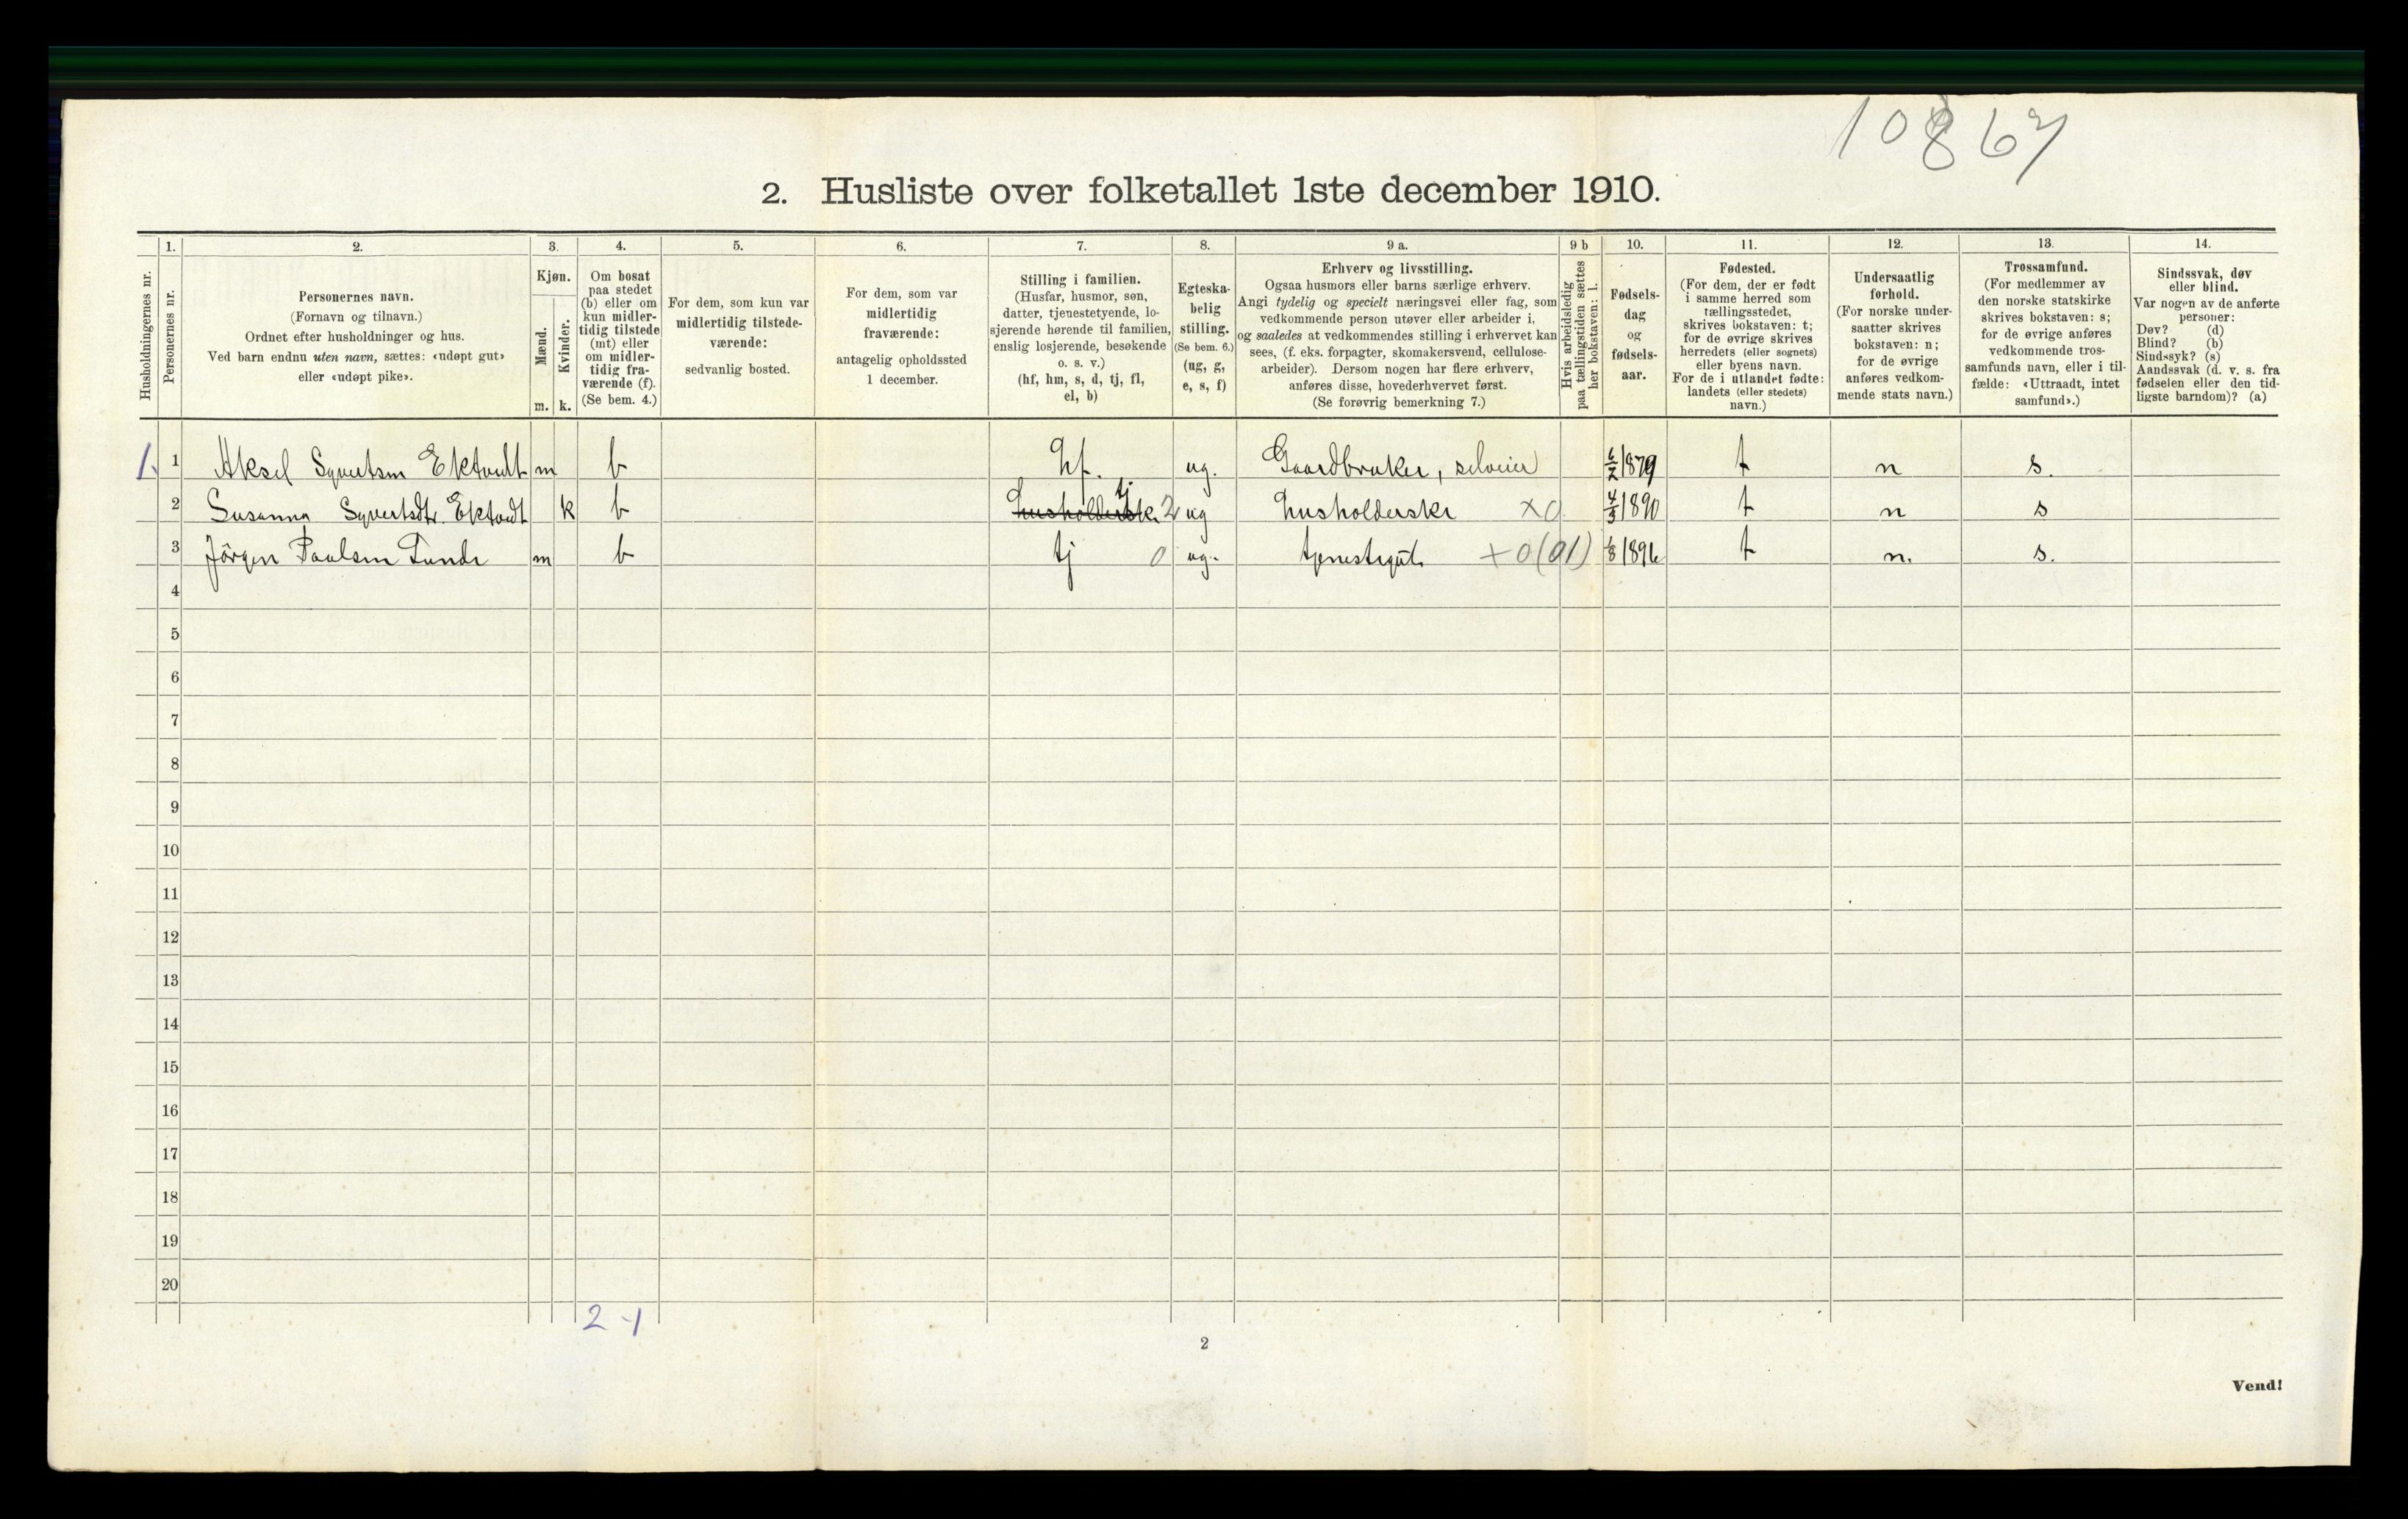 10867
2. Husliste over folketallet 1ste december 1910.
Husholdningernes nr.
1.
Personernes nr.
2.
Personernes navn.
(Fornavn og tilnavn.)
Ordnet efter husholdninger og hus.
Ved barn endnu uten navn, sættes: «udøpt gut»
eller «udøpt pike».
3.
Kjøn.
Mænd.
Kvinder.
m. k.
4.
Om bosat
paa stedet
(b) eller om
kun midler-
tidig tilstede
(mt) eller
om midler-
tidig fra-
værende (f).
(Se bem. 4.)
5.
For dem, som kun var
midlertidig tilstede-
værende:
sedvanlig bosted.
6.
For dem, som var
midlertidig
fraværende:
antagelig opholdssted
1 december.
7.
Stilling i familien.
(Husfar, husmor, søn,
datter, tjenestetyende, lo-
sjerende hørende til familien,
enslig losjerende, besøkende
o. s. v.)
(hf, hm, s, d, tj, fl,
el, b)
8.
Egteska-
belig
stilling.
(Se bem. 6.)
(ug, g,
e, s, f)
9 a.
Erhverv og livsstilling.
Ogsaa husmors eller barns særlige erhverv.
Angi tydelig og specielt næringsvei eller fag, som
vedkommende person utøver eller arbeider i,
og saaledes at vedkommendes stilling i erhvervet kan
sees, (f. eks. forpagter, skomakersvend, cellulose-
arbeider). Dersom nogen har flere erhverv,
anføres disse, hovederhvervet først.
(Se forøvrig bemerkning 7.)
9 b
Hvis arbeidsledig
paa tællingstiden sættes
her bokstaven: l.
10.
Fødsels-
dag
og
fødsels-
aar.
11.
Fødested.
(For dem, der er født
i samme herred som
tællingsstedet,
skrives bokstaven: t;
for de øvrige skrives
herredets (eller sognets)
eller byens navn.
For de i utlandet fødte:
landets (eller stedets)
navn.)
12.
Undersaatlig
forhold.
(For norske under-
saatter skrives
bokstaven: n;
for de øvrige
anføres vedkom-
mende stats navn.)
13.
Trossamfund.
(For medlemmer av
den norske statskirke
skrives bokstaven: s;
for de øvrige anføres
vedkommende tros-
samfunds navn, eller i til-
fælde: «Uttraadt, intet
samfund».)
14.
Sindssvak, døv
eller blind.
Var nogen av de anførte
personer:
Døv? (d)
Blind? (b)
Sindssyk? (s)
Aandssvak (d. v. s. fra
fødselen eller den tid-
ligste barndom)? (a)
1. 1 Aksel Syvertsen Ektvedt m b hf. ug. Gaardbruker, selveier 6/2 1879 t n s.
2 Susanna Syvertsdtr. Ektvedt k b husholdersk. tj 2 ug husholderske x0 4/3 1890 t n s
3 Jörgen Paulsen Lunde m b tj 0 ug. tjenestegut. +0(01) 1896 t n. s.
4
5
6
7
8
9
10
11
12
13
14
15
16
17
18
19
20
2-1
2
Vend!